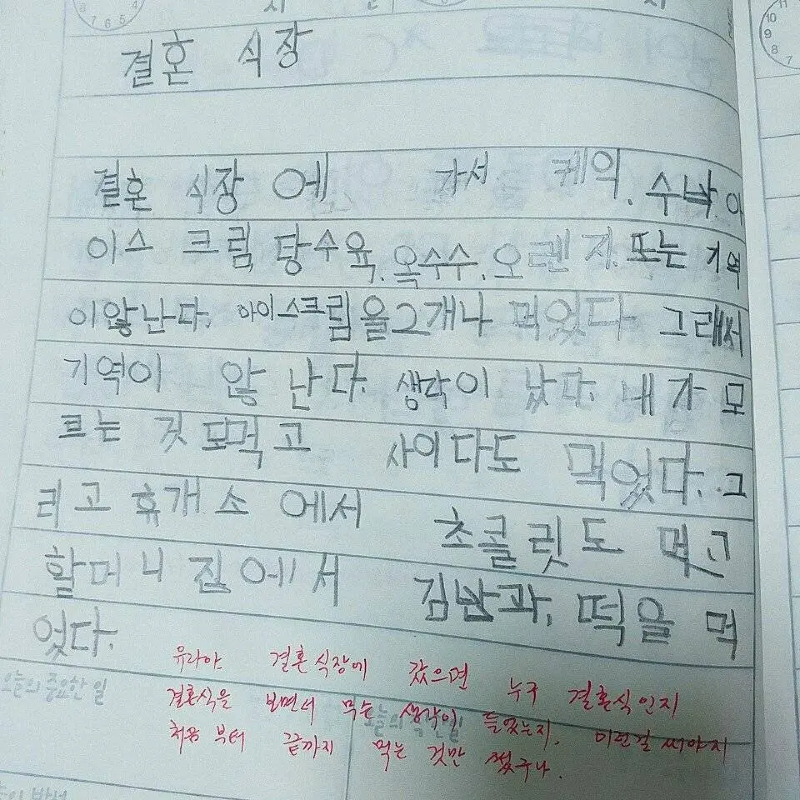 결혼 식장
결혼 식장 에 가서 케익, 수박, 아
이스 크림, 탕수육, 옥수수, 오렌 지, 또는 기억
이않난다. 아이스크림을2개나 먹었다 그래써
기역이 않 난다. 생각이 났다. 내 가 모
르는 것 도먹 고 사이다도 먹었다. 그
리고 휴개소 에서 초콜릿도 먹고
할머니 집에서 김밥과, 떡을 먹
었다.
유라야 결혼식장에 갔으면 누구 결혼식인지
결혼식을 보면서 무슨 생각이 들었는지, 이런걸 써야지
처음 부터 끝까지 먹는 것만 썼구나.
오늘의 중요한 일